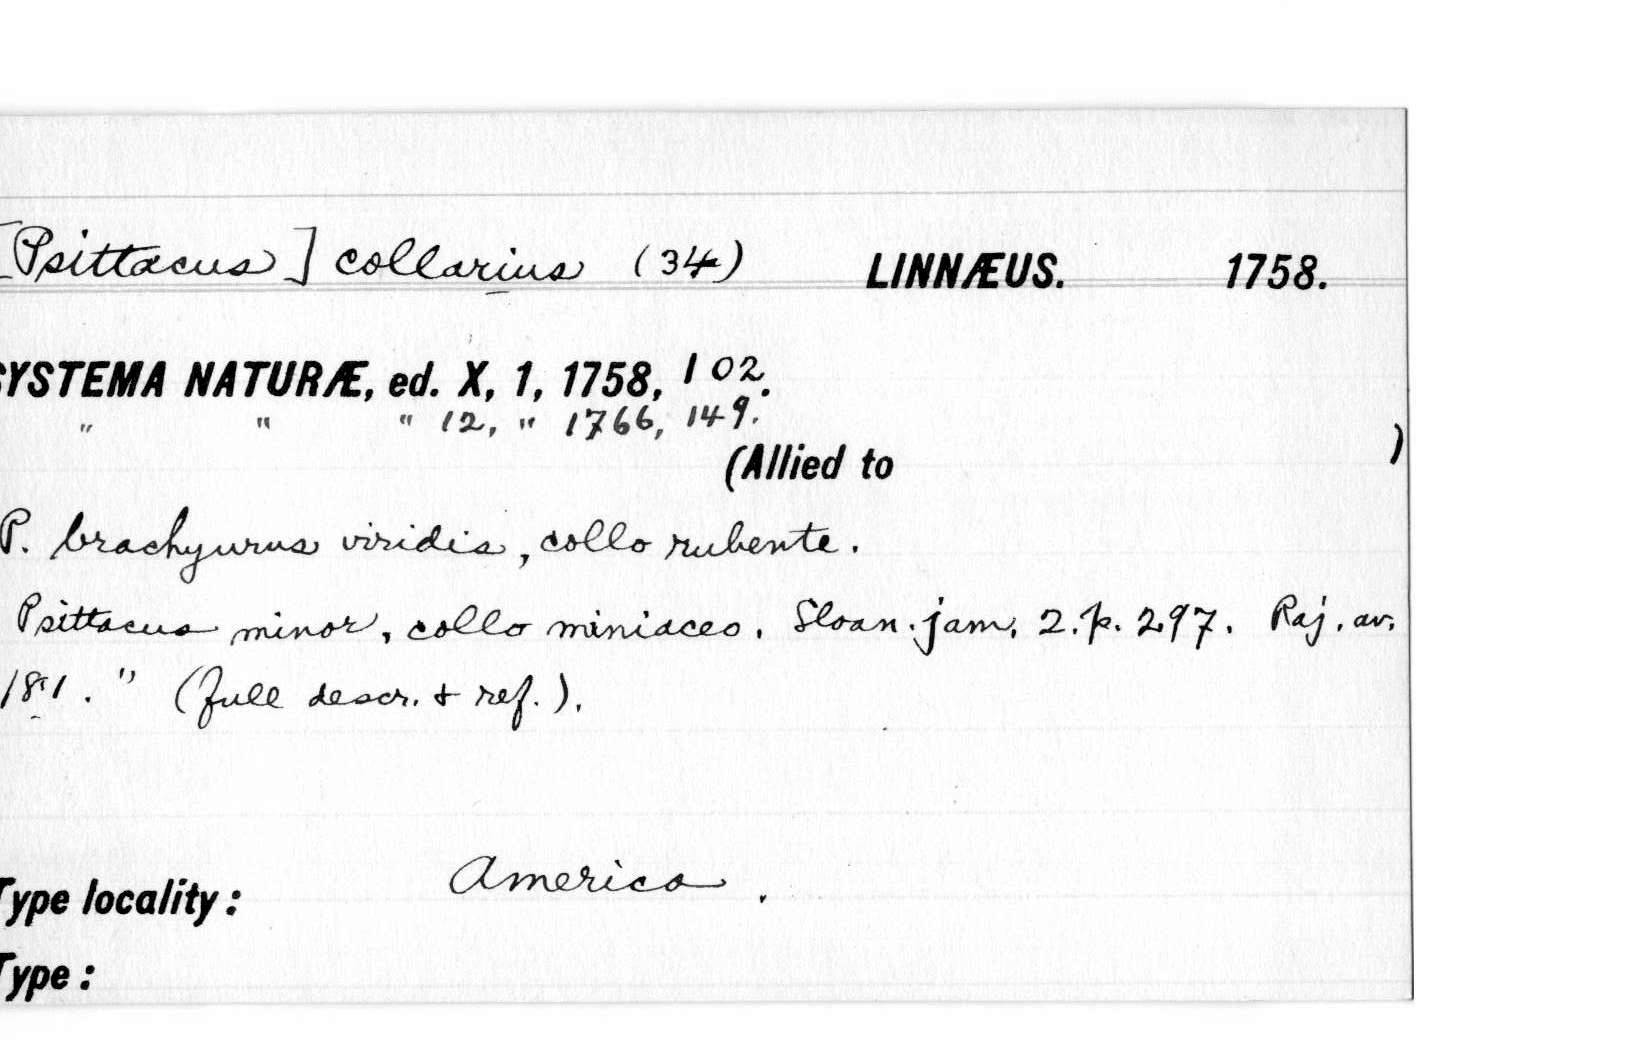 [Psittacus] collarius (34) LINNÆUS. 1758.
SYSTEMA NATURÆ, ed. X, 1, 1758, 102.
" " " 12, " 1766, 149.
(Allied to )
P. brachyurus viridis, collo rubente.
Psittacus minor, collo miniaceo. Sloan. jam. 2. p. 297. Raj. av.
181." (full descr. & ref.).
Type locality: America.
Type: